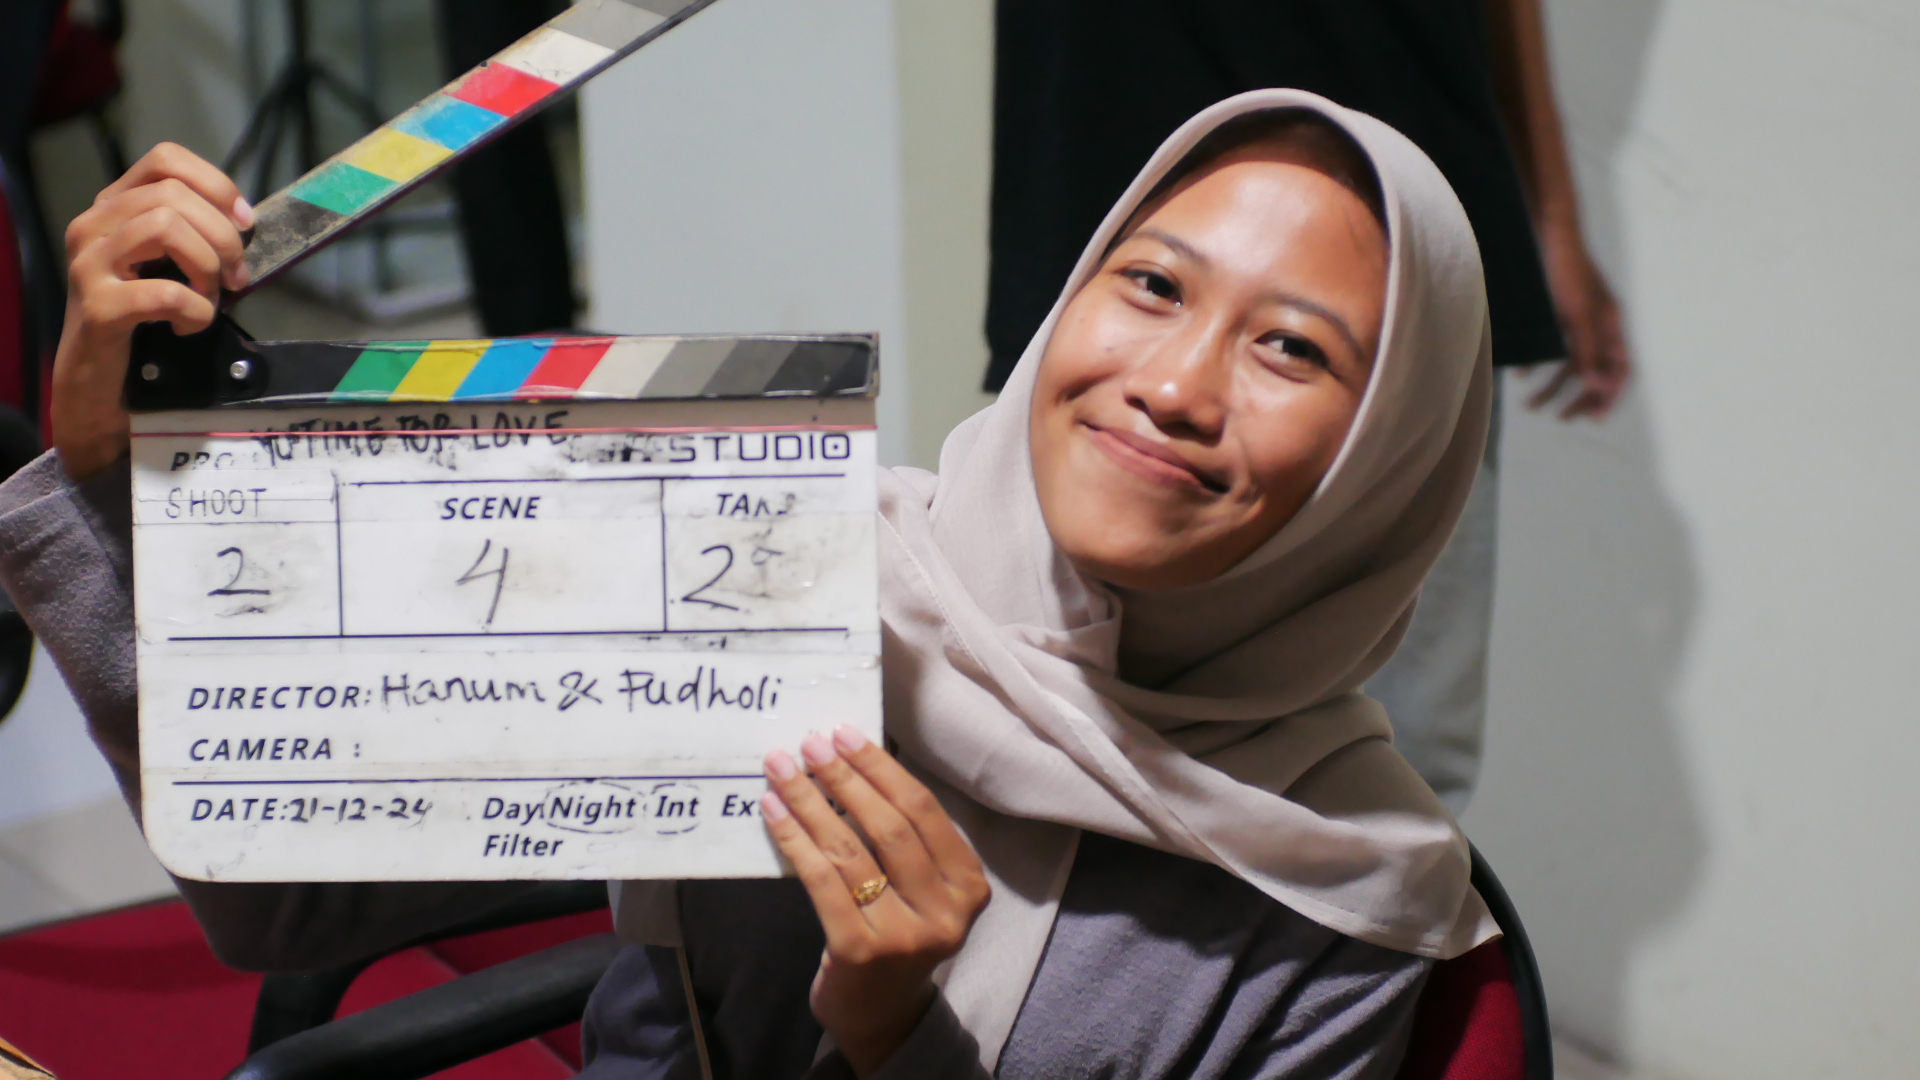 NO TIME FOR LOVE
PRO STUDIO
SHOOT SCENE TAKE
2 4 2
DIRECTOR: Hanum & Fudholi
CAMERA :
DATE: 21-12-24 Day Night Int Ex
Filter